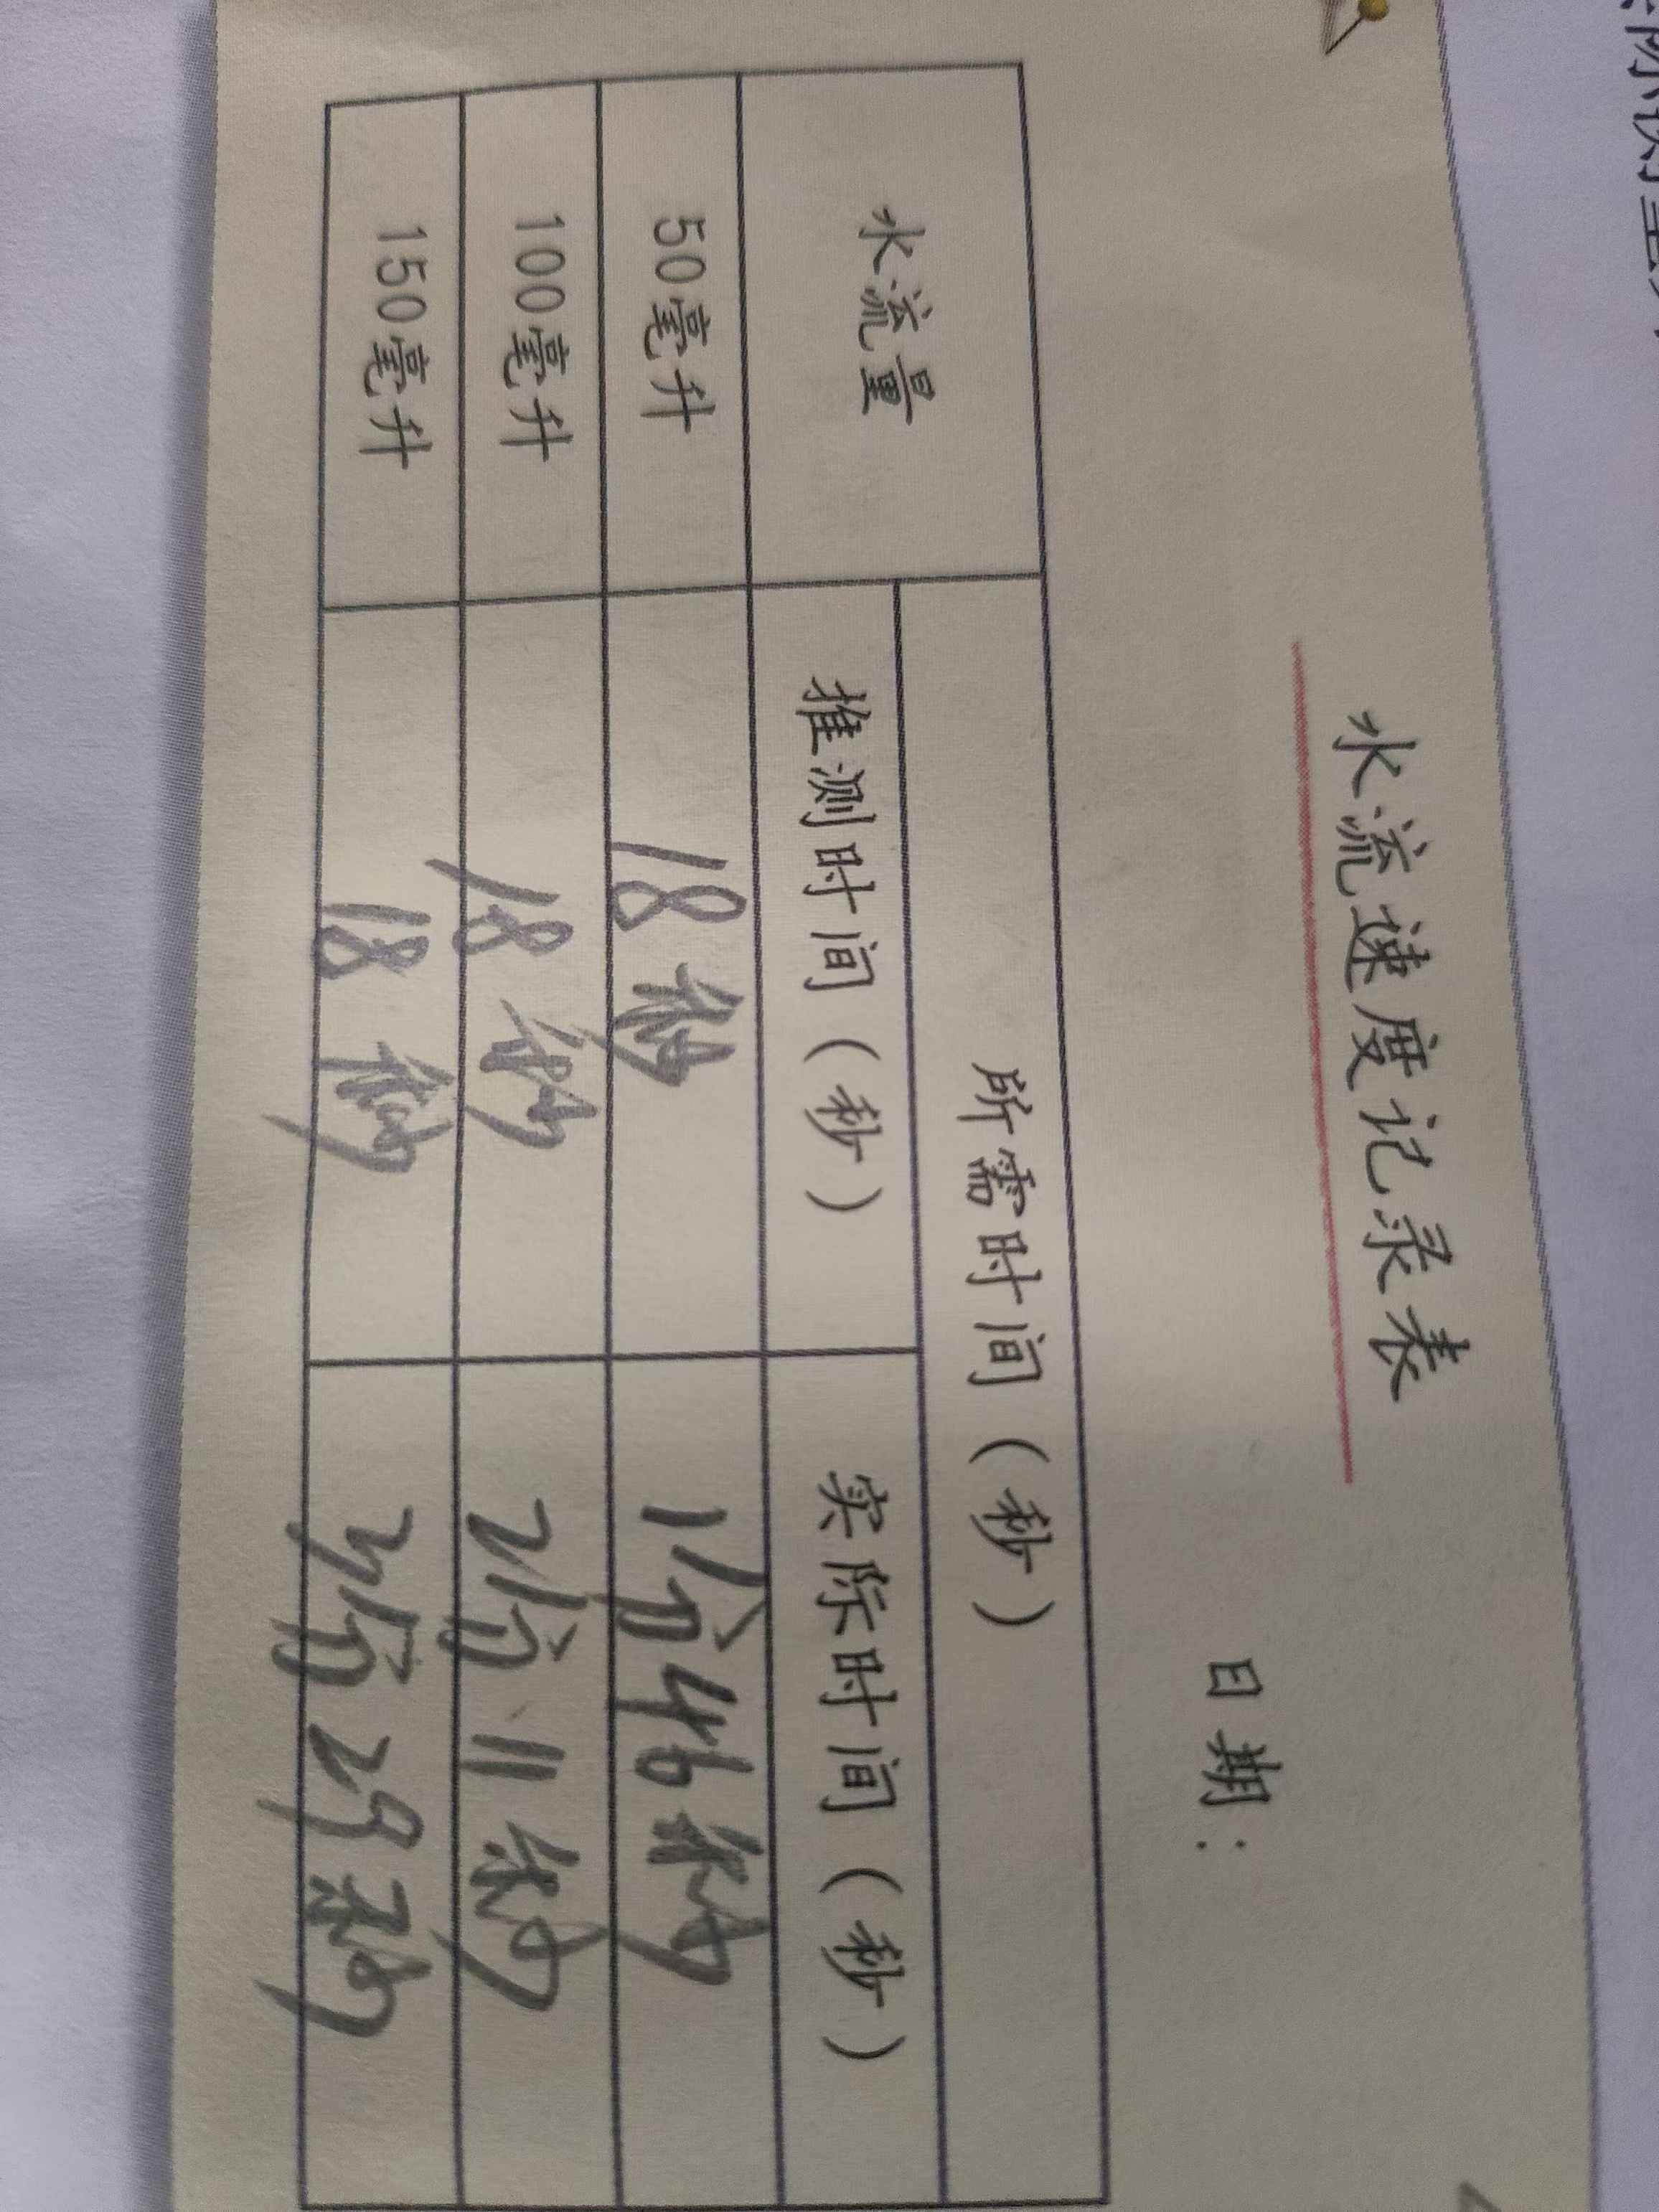 水流速度记录表
日期：
水流量 所需时间（秒）
推测时间（秒） 实际时间（秒）
50毫升 18秒 1分46秒
100毫升 18秒 2分11秒
150毫升 18秒 3分29秒